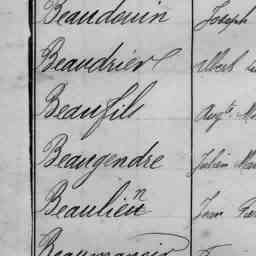 Beaudouin Joseph
Beaudrier Albert
Beaufils Augte
Beaugendre Julien
Beaulieu n Jean
Beaumanoir